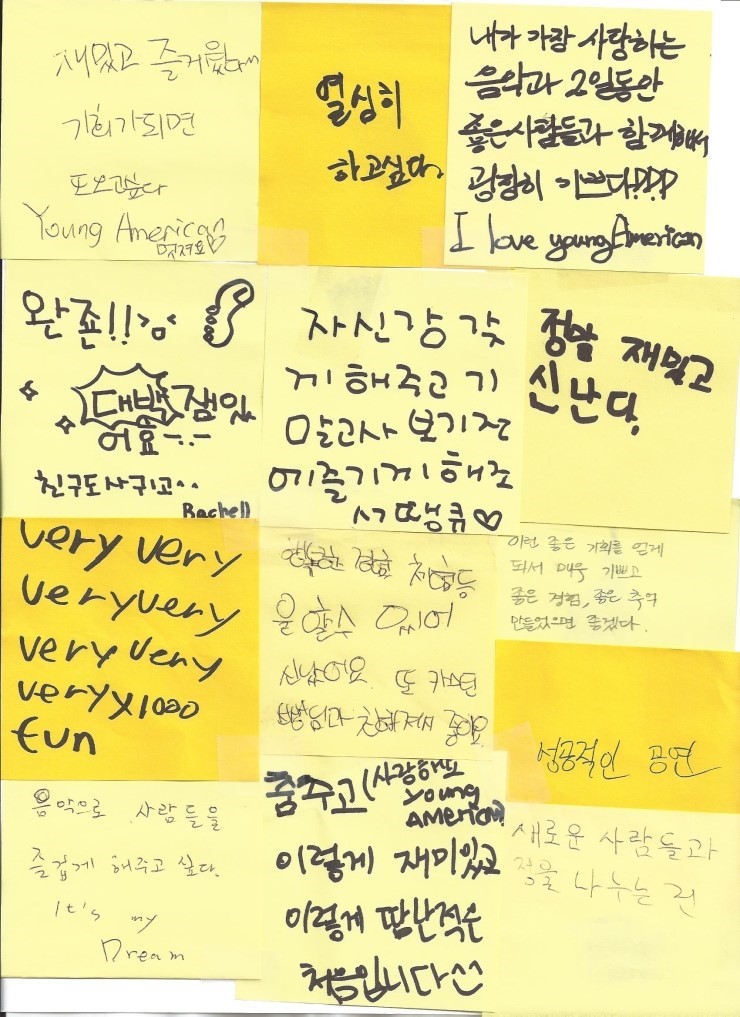 재밌고 즐거웠다ㅆ
기회가되면
또오고싶다
Young American
멋져요♡
열심히
하고싶다.
내가 가장 사랑하는
음악과 2일동안
좋은사람들과 함께해서
굉장히 기쁘다???
I love youngAmerican
완죤!!
대박 잼있
어효-.-
친구도사귀고..
Rachell
자신감 갖
게 해주고 기
말고사 보기전
에즐기게 해조
서 땡큐♡
정말 재밌고
신난다.
very very
veryvery
very very
veryx1000
fun
행복한 경험 체험등
을 할수 있어
신났어요. 또
친해져서 좋아요
이런 좋은 기회를 얻게
되서 매우 기쁘고
좋은 경험, 좋은 추억
만들었으면 좋겠다.
성공적인 공연
음악으로 사람들을
즐겁게 해주고 싶다.
It's my
Dream
춤추고(사랑해또
young
AMERICAN)
이렇게 재미있고
이렇게 땀난적은
처음입니다
새로운 사람들과
정을 나누는 것